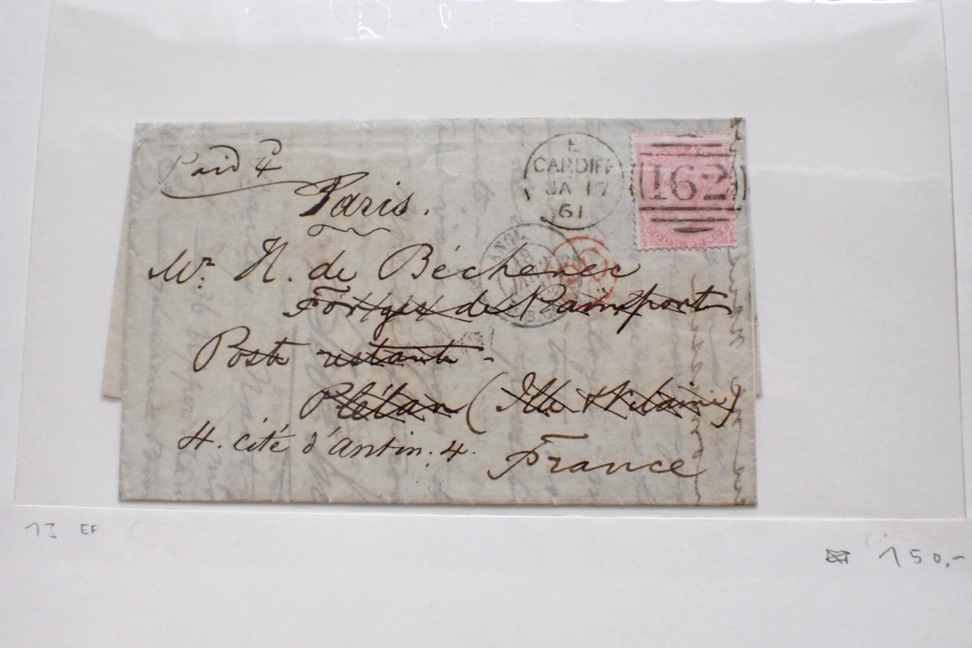 Paid 4
Paris.
E
CARDIFF
JA 17
61
162
Mr. H. de Béchenec
Forges de Paimpont
Poste restante -
Plélan (Ille & Vilaine)
4. cité d'Antin. 4.
France
1I EF
150,-